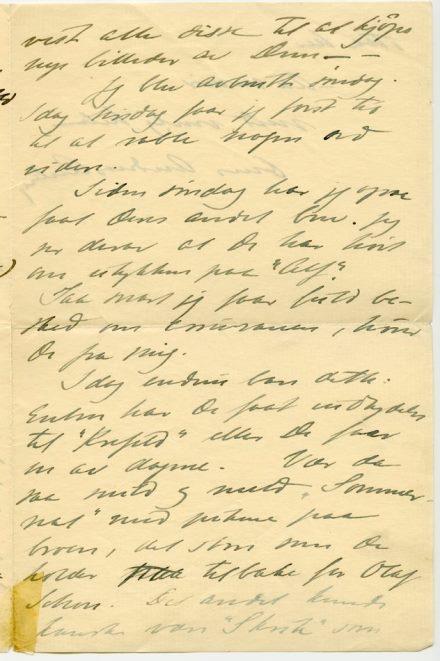 vist alle disse til at kjøpe
nye billeder av Dem —
Jeg blev avbrutt søndag.
Idag tirsdag faar jeg først tid
til at rable nogen ord
videre.
Siden søndag har jeg ogsaa
faat Deres andet brev. Jeg
ser derav at De har hørt
om ulykken paa "Alf".
Saa snart jeg faar fuld be-
sked om , hører
De fra mig.
Idag endnu bare dette:
Enten har De faat indbydelse
til "Krefeld" eller De faar
en av dagene. Vær da
saa snild og meld "Sommer-
nat" med pikene paa
broen, det som om De
holder tilbake for Olaf
Schou. Det andet kunde
kanske være som